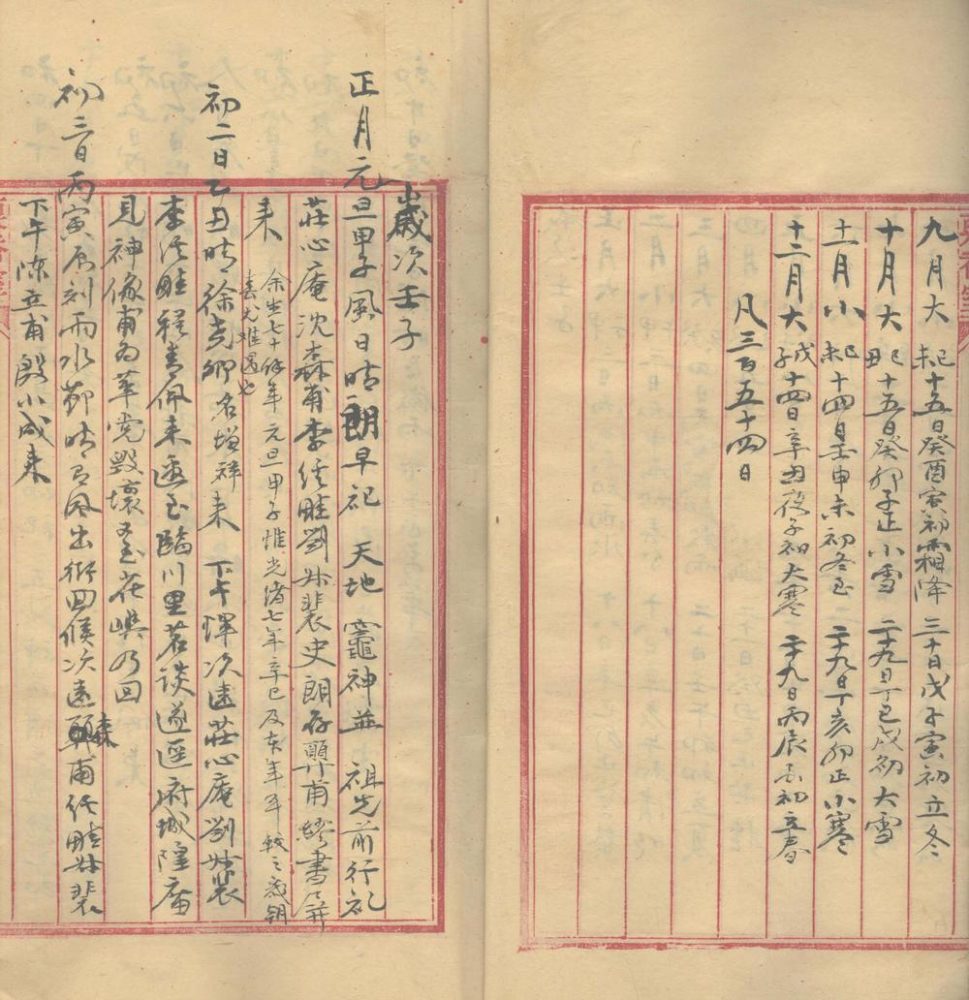 九月大 十五日癸酉寅初霜降 三十日戊子寅初立冬
十月大 十五日癸卯子正小雪 二十九日丁巳戌初大雪
十一月小 十四日壬申未初冬至 二十九日丁亥卯正小寒
十二月大 十四日辛丑夜子初大寒 二十九日丙辰酉初立春
凡三百五十四日
歲次壬子
正月元旦甲子風日晴朗早祀 天地 竈神並 祖先前行礼
莊心庵沈森甫李經畦劉姒裴史朗存顨甫繆書屏
来
余生七十餘年元旦甲子惟光緒七年辛巳及本年耳較之歲朝
春尤難遇也
初二日乙丑晴徐堯卿名增祥来 下午惲次遠莊心庵劉姒裴
李經畦程青佩来遂至臨川里茗談遂逛府城隍庙
見神像甫為革党毀壞至花嶼乃回
初三日丙寅辰刻雨水節晴有風出街回候次遠森甫經畦姒裴
下午陈立甫殷小成来